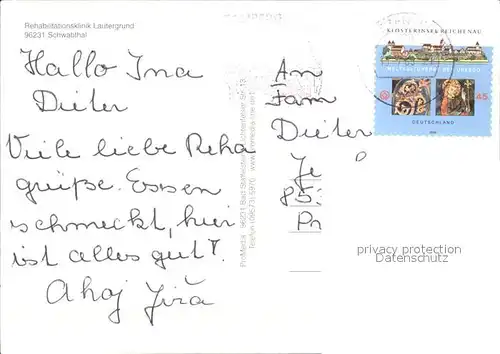 Rehabilitationsklinik Lautergrund
96231 Schwabthal
Hallo Ina
Dieter
Viele liebe Reha
grüße. Essen
schmeckt, hier
ist alles gut!
Ahoj Jirá
An
Fam
Dieter
Je
85
Pr
KLOSTERINSEL REICHENAU
WELTKULTURERBE DER UNESCO
45
DEUTSCHLAND
privacy protection
Datenschutz